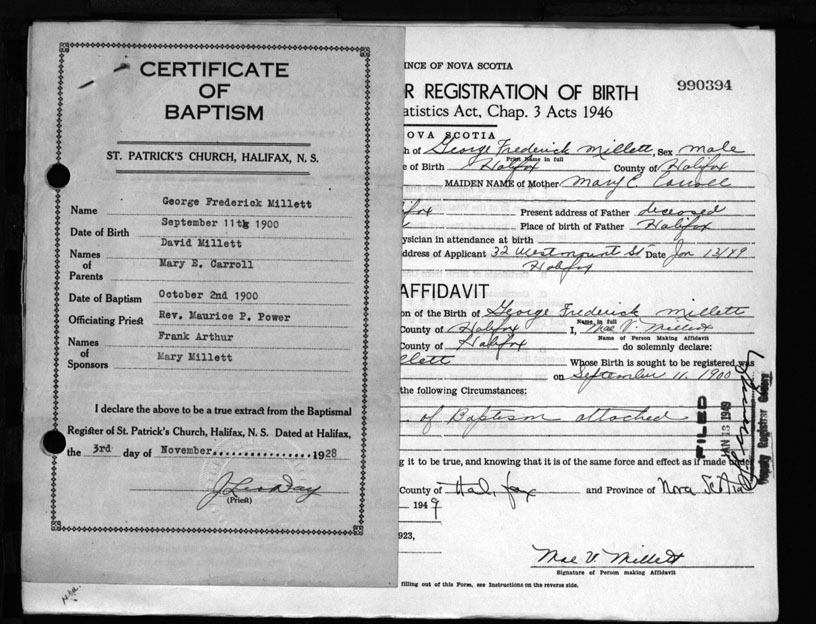 CERTIFICATE
OF
BAPTISM
ST. PATRICK'S CHURCH, HALIFAX, N. S.
Name George Frederick Millett
Date of Birth September 11th 1900
Names of Parents David Millett
Mary E. Carroll
Date of Baptism October 2nd 1900
Officiating Priest Rev. Maurice P. Power
Names of Sponsors Frank Arthur
Mary Millett
I declare the above to be a true extract from the Baptismal
Register of St. Patrick's Church, Halifax, N. S. Dated at Halifax,
the 3rd day of November 1928
(Priest)
INCE OF NOVA SCOTIA
990394
R REGISTRATION OF BIRTH
atistics Act, Chap. 3 Acts 1946
NOVA SCOTIA
h of George Frederick Millett, Sex male
Print Name in full
e of Birth Halifax County of Halifax
MAIDEN NAME of Mother Mary E. Carroll
ifax Present address of Father deceased
Place of birth of Father Halifax
ysician in attendance at birth
ddress of Applicant 32 Westmount St Date Jan 13/49
Halifax
AFFIDAVIT
on of the Birth of George Frederick Millett
Name in full
County of Halifax I, Mae V. Millett
Name of Person Making Affidavit
County of Halifax do solemnly declare:
llett Whose Birth is sought to be registered, was
on September 11, 1900
the following Circumstances:
of Baptism attached
FILED
JAN 13 1949
Deputy Registrar General
g it to be true, and knowing that it is of the same force and effect as if made under
County of Halifax and Province of Nova Scotia
1949
923,
Mae V. Millett
Signature of Person making Affidavit
filling out of this Form, see Instructions on the reverse side.